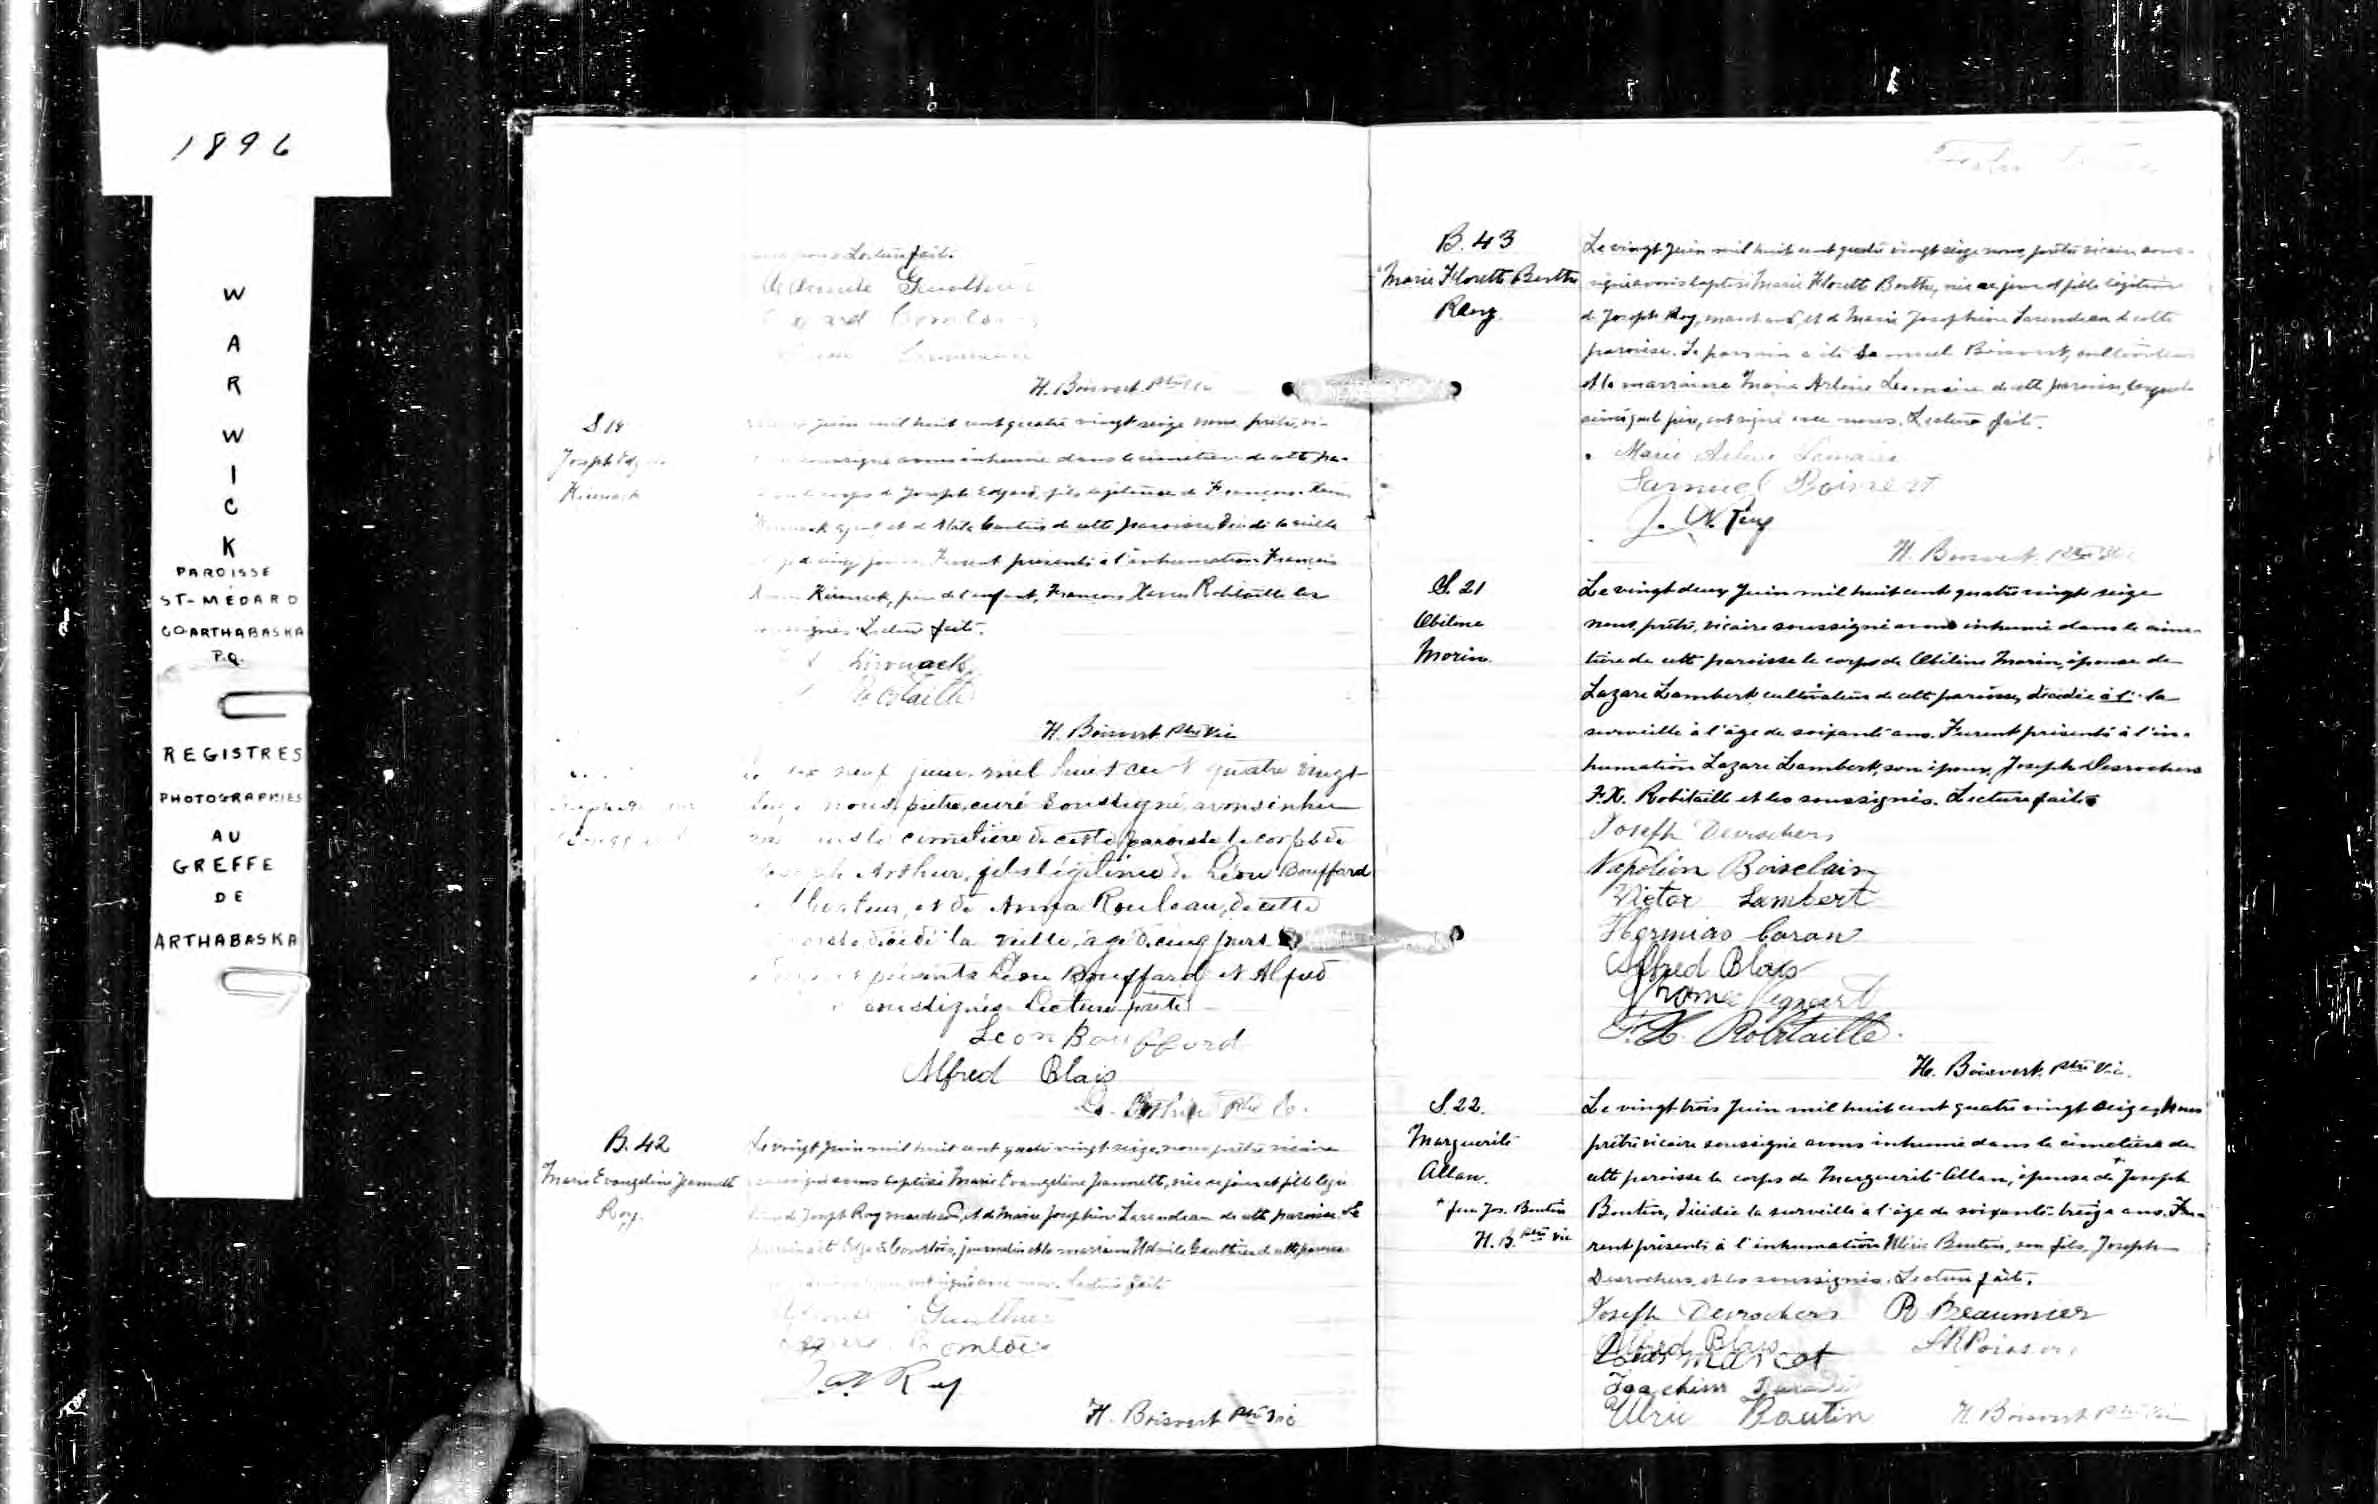 1896
WARWICK
PAROISSE
ST-MÉDARD
CO-ARTHABASKA
P.Q.
REGISTRES
PHOTOGRAPHIES
AU
GREFFE
DE
ARTHABASKA
Lecture faite.
Gaulthier
H. Boisvert Ptre Vic
S 19
Joseph Edgar
Kirouack
Juin mil huit cent quatre vingt seize nous, prêtre, vi-
soussigné avons inhumé dans le cimetière de cette pa-
corps de Joseph Edgard, fils légitime de François Xavier
et de cette paroisse, décédé la veille
cinq jours. Furent présents à l'inhumation François
Kirouack, père de l'enfant, François Xavier Robitaille les
soussignés. Lecture faite.
Kirouack
Robitaille
H. Boisvert Ptre Vic
neuf juin mil huit cent quatre vingt
nous prêtre, curé soussigné, avons inhu
le cimetière de cette paroisse le corps de
Arthur, fils légitime de Léon Bouffard
et de Anna Rouleau, de cette
décédé la veille, agé de cinq jours
présents Léon Bouffard et Alfred
soussignés. Lecture faite
Leon Bouffard
Alfred Blais
B. 42
Marie Evangeline Jeannette
Roy.
Le vingt Juin mil huit cent quatre vingt-seize, nous prêtre vicaire
soussigné avons baptisé Marie Evangeline Jeannette, née ce jour et fille légi
time de Joseph Roy marchand, et de Marie Josephine Larendeau de cette paroisse. Le
parrain a été Edgard Courtois, journalier et la marraine Gaulthier de cette paroisse
ont signé avec nous. Lecture faite
Gaulthier
J. N. Roy
H. Boisvert Ptre Vic
B. 43
Marie Florette Berthe
Roy.
Le vingt Juin mil huit cent quatre vingt seize nous, prêtre vicaire sous-
signé avons baptisé Marie Florette Berthe, née ce jour et fille légitime
de Joseph Roy, marchand, et de Marie Josephine Larendeau de cette
paroisse. Le parrain a été Samuel Boisvert, cultivateur
et la marraine Marie Arlene Lemaire de cette paroisse, lesquels
ainsi que le père, ont signé avec nous. Lecture faite.
Marie Arlene Lemaire
Samuel Boisvert
J. N. Roy
H. Boisvert Ptre Vic
S. 21
Obiline
Morin.
Le vingt deux Juin mil huit cent quatre vingt seize
nous, prêtre, vicaire soussigné avons inhumé dans le cime-
tière de cette paroisse le corps de Obiline Morin, épouse de
Lazare Lambert cultivateur de cette paroisse, décédée à l' la
surveille à l'âge de soixante ans. Furent présents à l'in-
humation Lazare Lambert, son époux, Joseph Desrochers
F.X. Robitaille et les soussignés. Lecture faite
Joseph Desrochers
Napoléon Boisclair
Victor Lambert
Hermias Caron
Alfred Blais
F. X. Robitaille.
H. Boisvert, Ptre Vic.
S. 22.
Marguerite
Allan.
* feu Jos. Boutin
H. B. Ptre Vic
Le vingt trois Juin mil huit cent quatre vingt seize, Nous
prêtre vicaire soussigné avons inhumé dans le cimetière de
cette paroisse le corps de Marguerite Allan, épouse de * Joseph
Boutin, décédée la surveille à l'âge de soixante-treize ans. Fu-
rent présents à l'inhumation Ulric Boutin, son fils, Joseph
Desrochers, et les soussignés. Lecture faite.
Joseph Desrochers R Beaumier
Alfred Blais
Marcot
Joachim
Ulric Boutin H. Boisvert Ptre Vic